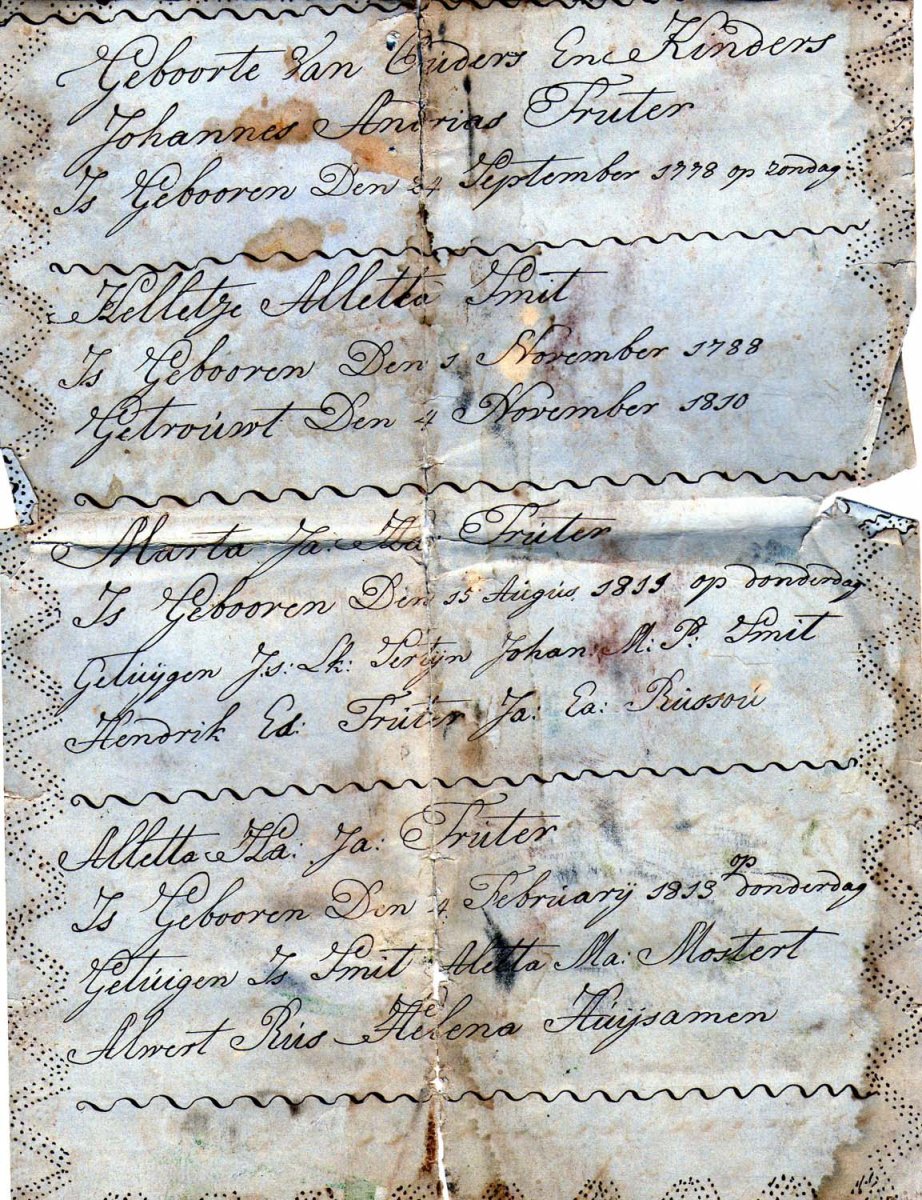 Geboorte Van Ouders En Kinders
Johannes Andrias Truter
Is Gebooren Den 24 September 1778 op zondag
Helletje Alletta Smit
Is Gebooren Den 1 November 1788
Getroúwt Den 4 November 1810
Marta Ja: Ha: Trúter
Is Gebooren Den 15 Aúgús 1811 op donderdag
Getúÿgen Js: Lk: Sertÿn Johan: M: P: Smit
Hendrik Ed: Trúter Ja: Ea: Rússoú
Alletta Ha: Ja: Trúter
Is Gebooren Den 4 Febrúarÿ 1813 op donderdag
Getúigen Is Smit Aletta Ma: Mostert
Alwert Rús Helena Húÿsamen